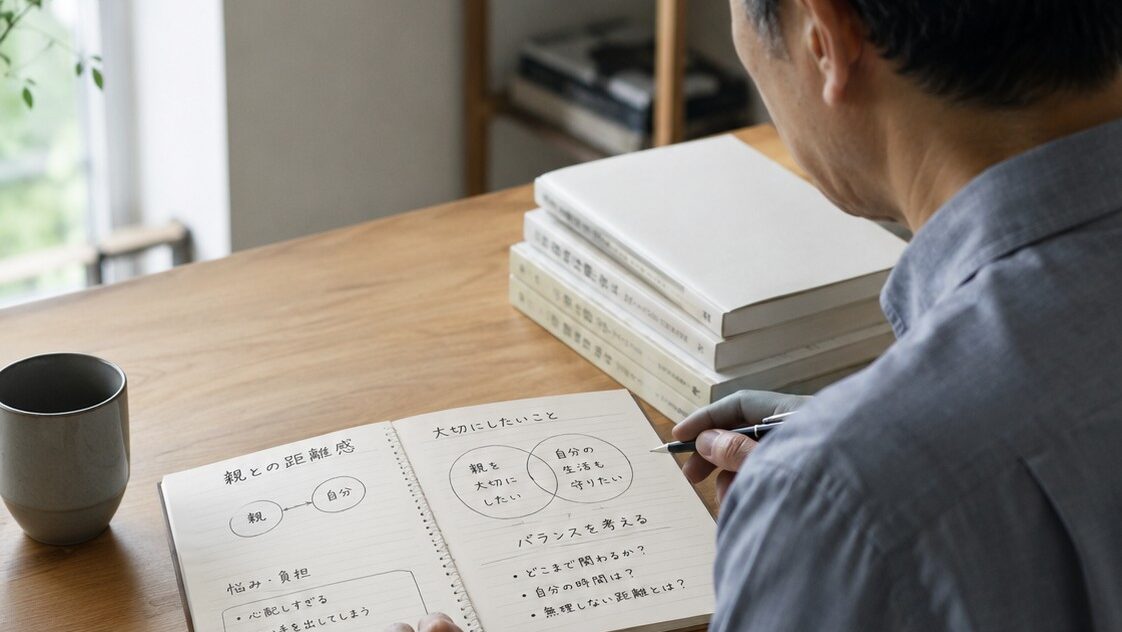 親との距離感
親
自分
悩み・負担
・心配しすぎる
手を出してしまう
大切にしたいこと
親を
大切に
したい
自分の
生活も
守りたい
バランスを考える
・どこまで関わるか？
・自分の時間は？
・無理しない距離とは？